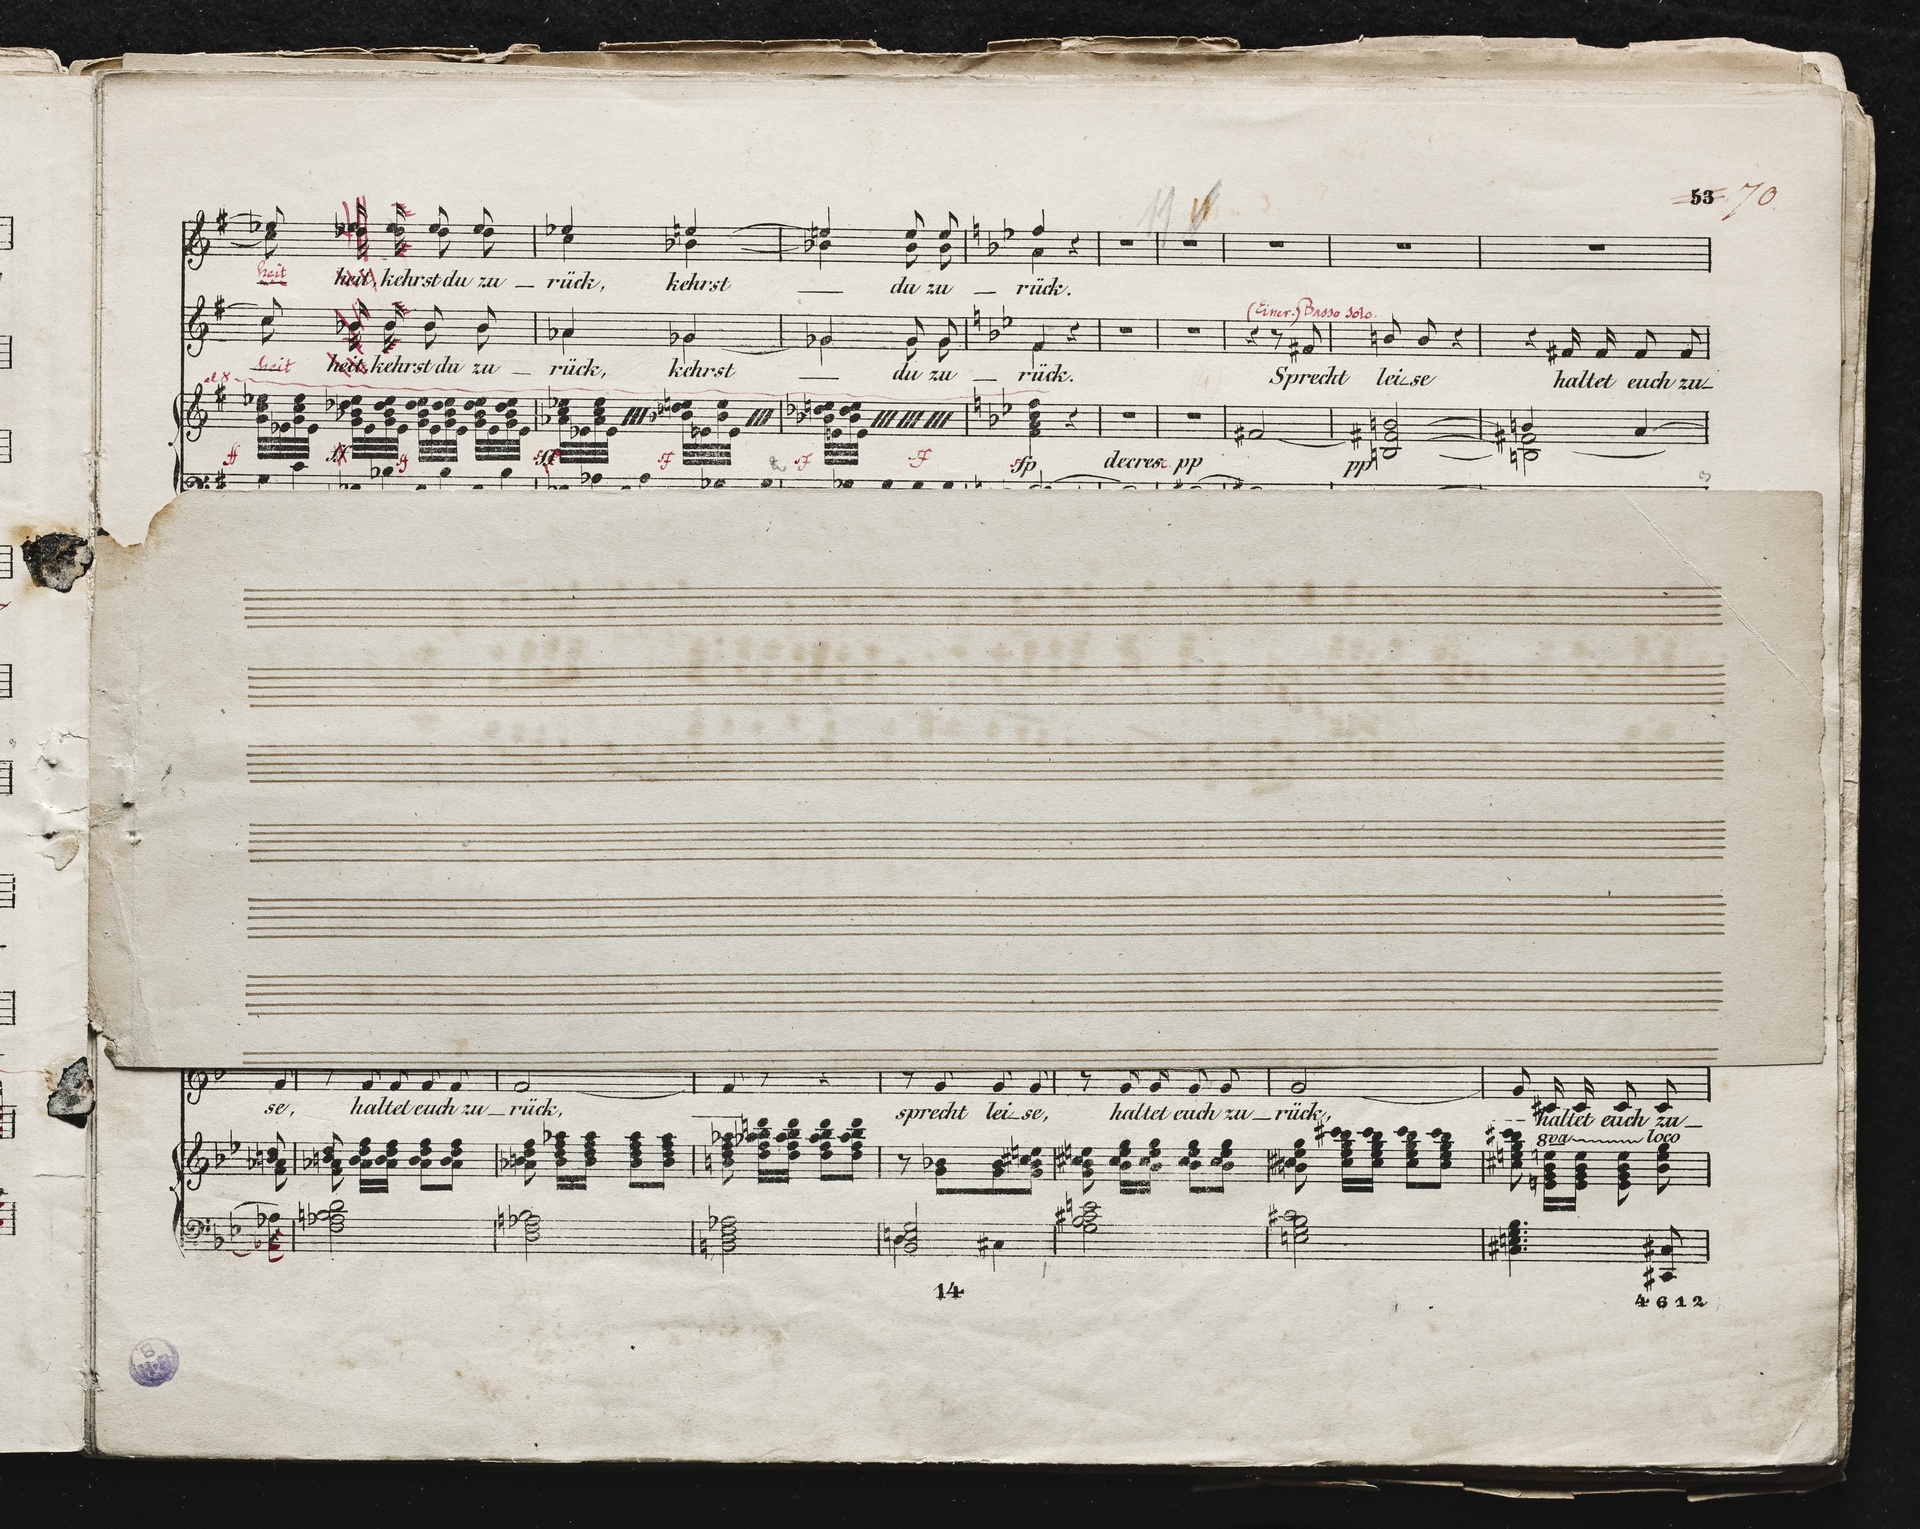 53 70
heit heit, kehrst du zu — rück, kehrst — du zu — rück.
(Einer.) Basso Solo.
heit heit, kehrst du zu — rück, kehrst — du zu — rück. Sprecht lei_se haltet euch zu_
al 8
ff sf sf sf sf sfp decresc. pp pp
se, haltet euch zu_rück, sprecht lei_se, haltet euch zu_rück, haltet euch zu_
8va loco
14
4612